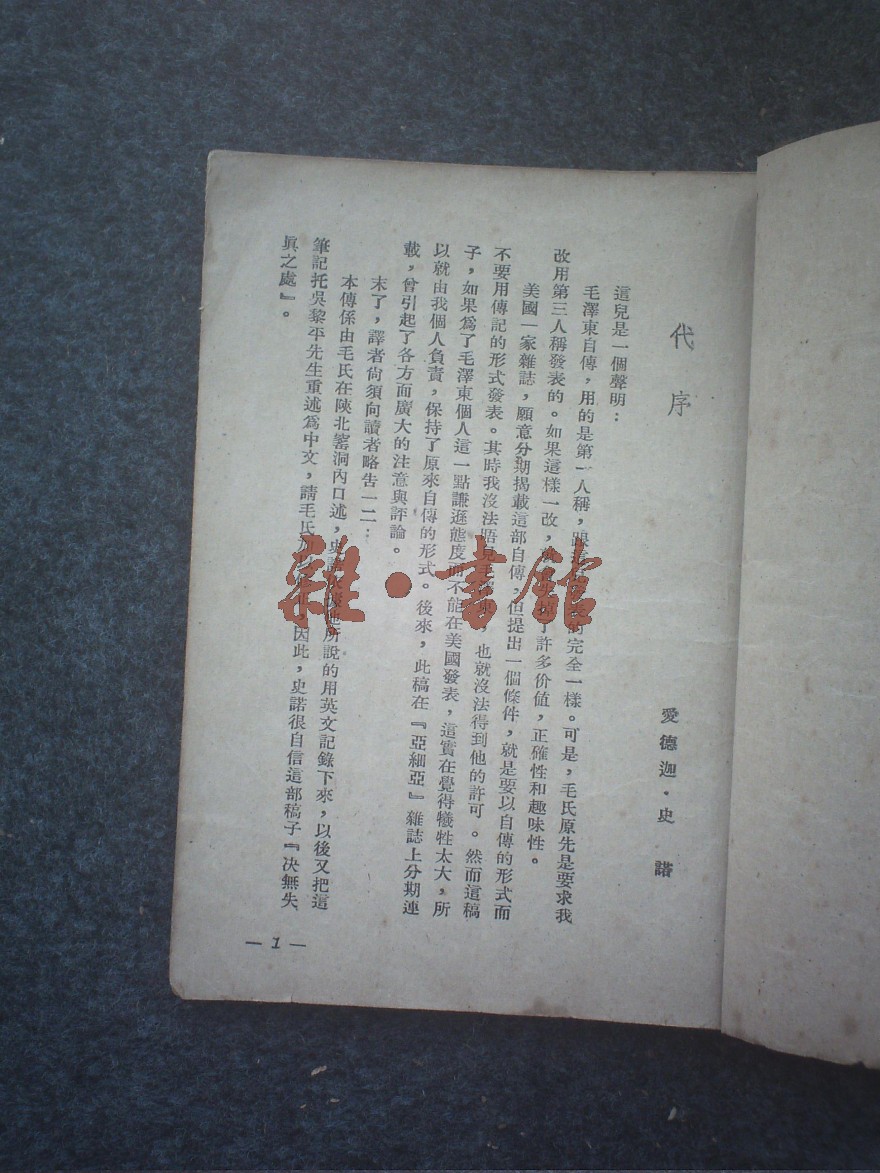 代序
愛德迦·史諾
這兒是一個聲明：
毛澤東自傳，用的是第一人稱，跟完全一樣。可是，毛氏原先是要求我
改用第三人稱發表的。如果這樣一改，了許多价值，正確性和趣味性。
美國一家雜誌，願意分期揭載這部自傳，但提出一個條件，就是要以自傳的形式而
不要用傳記的形式發表。其時我沒法晤見毛澤東，也就沒法得到他的許可。然而這稿
子，如果爲了毛澤東個人這一點謙遜態度而不能在美國發表，這實在覺得犧牲太大，所
以就由我個人負責，保持了原來自傳的形式。後來，此稿在『亞細亞』雜誌上分期連
載，曾引起了各方面廣大的注意與評論。
末了，譯者尙須向讀者略吿一二：
本傳係由毛氏在陝北窰洞內口述，史諾所說的用英文記錄下來，以後又把這
筆記托吳黎平先生重述爲中文，請毛氏，因此，史諾很自信這部稿子『决無失
眞之處』。
— 1 —
雜·書館